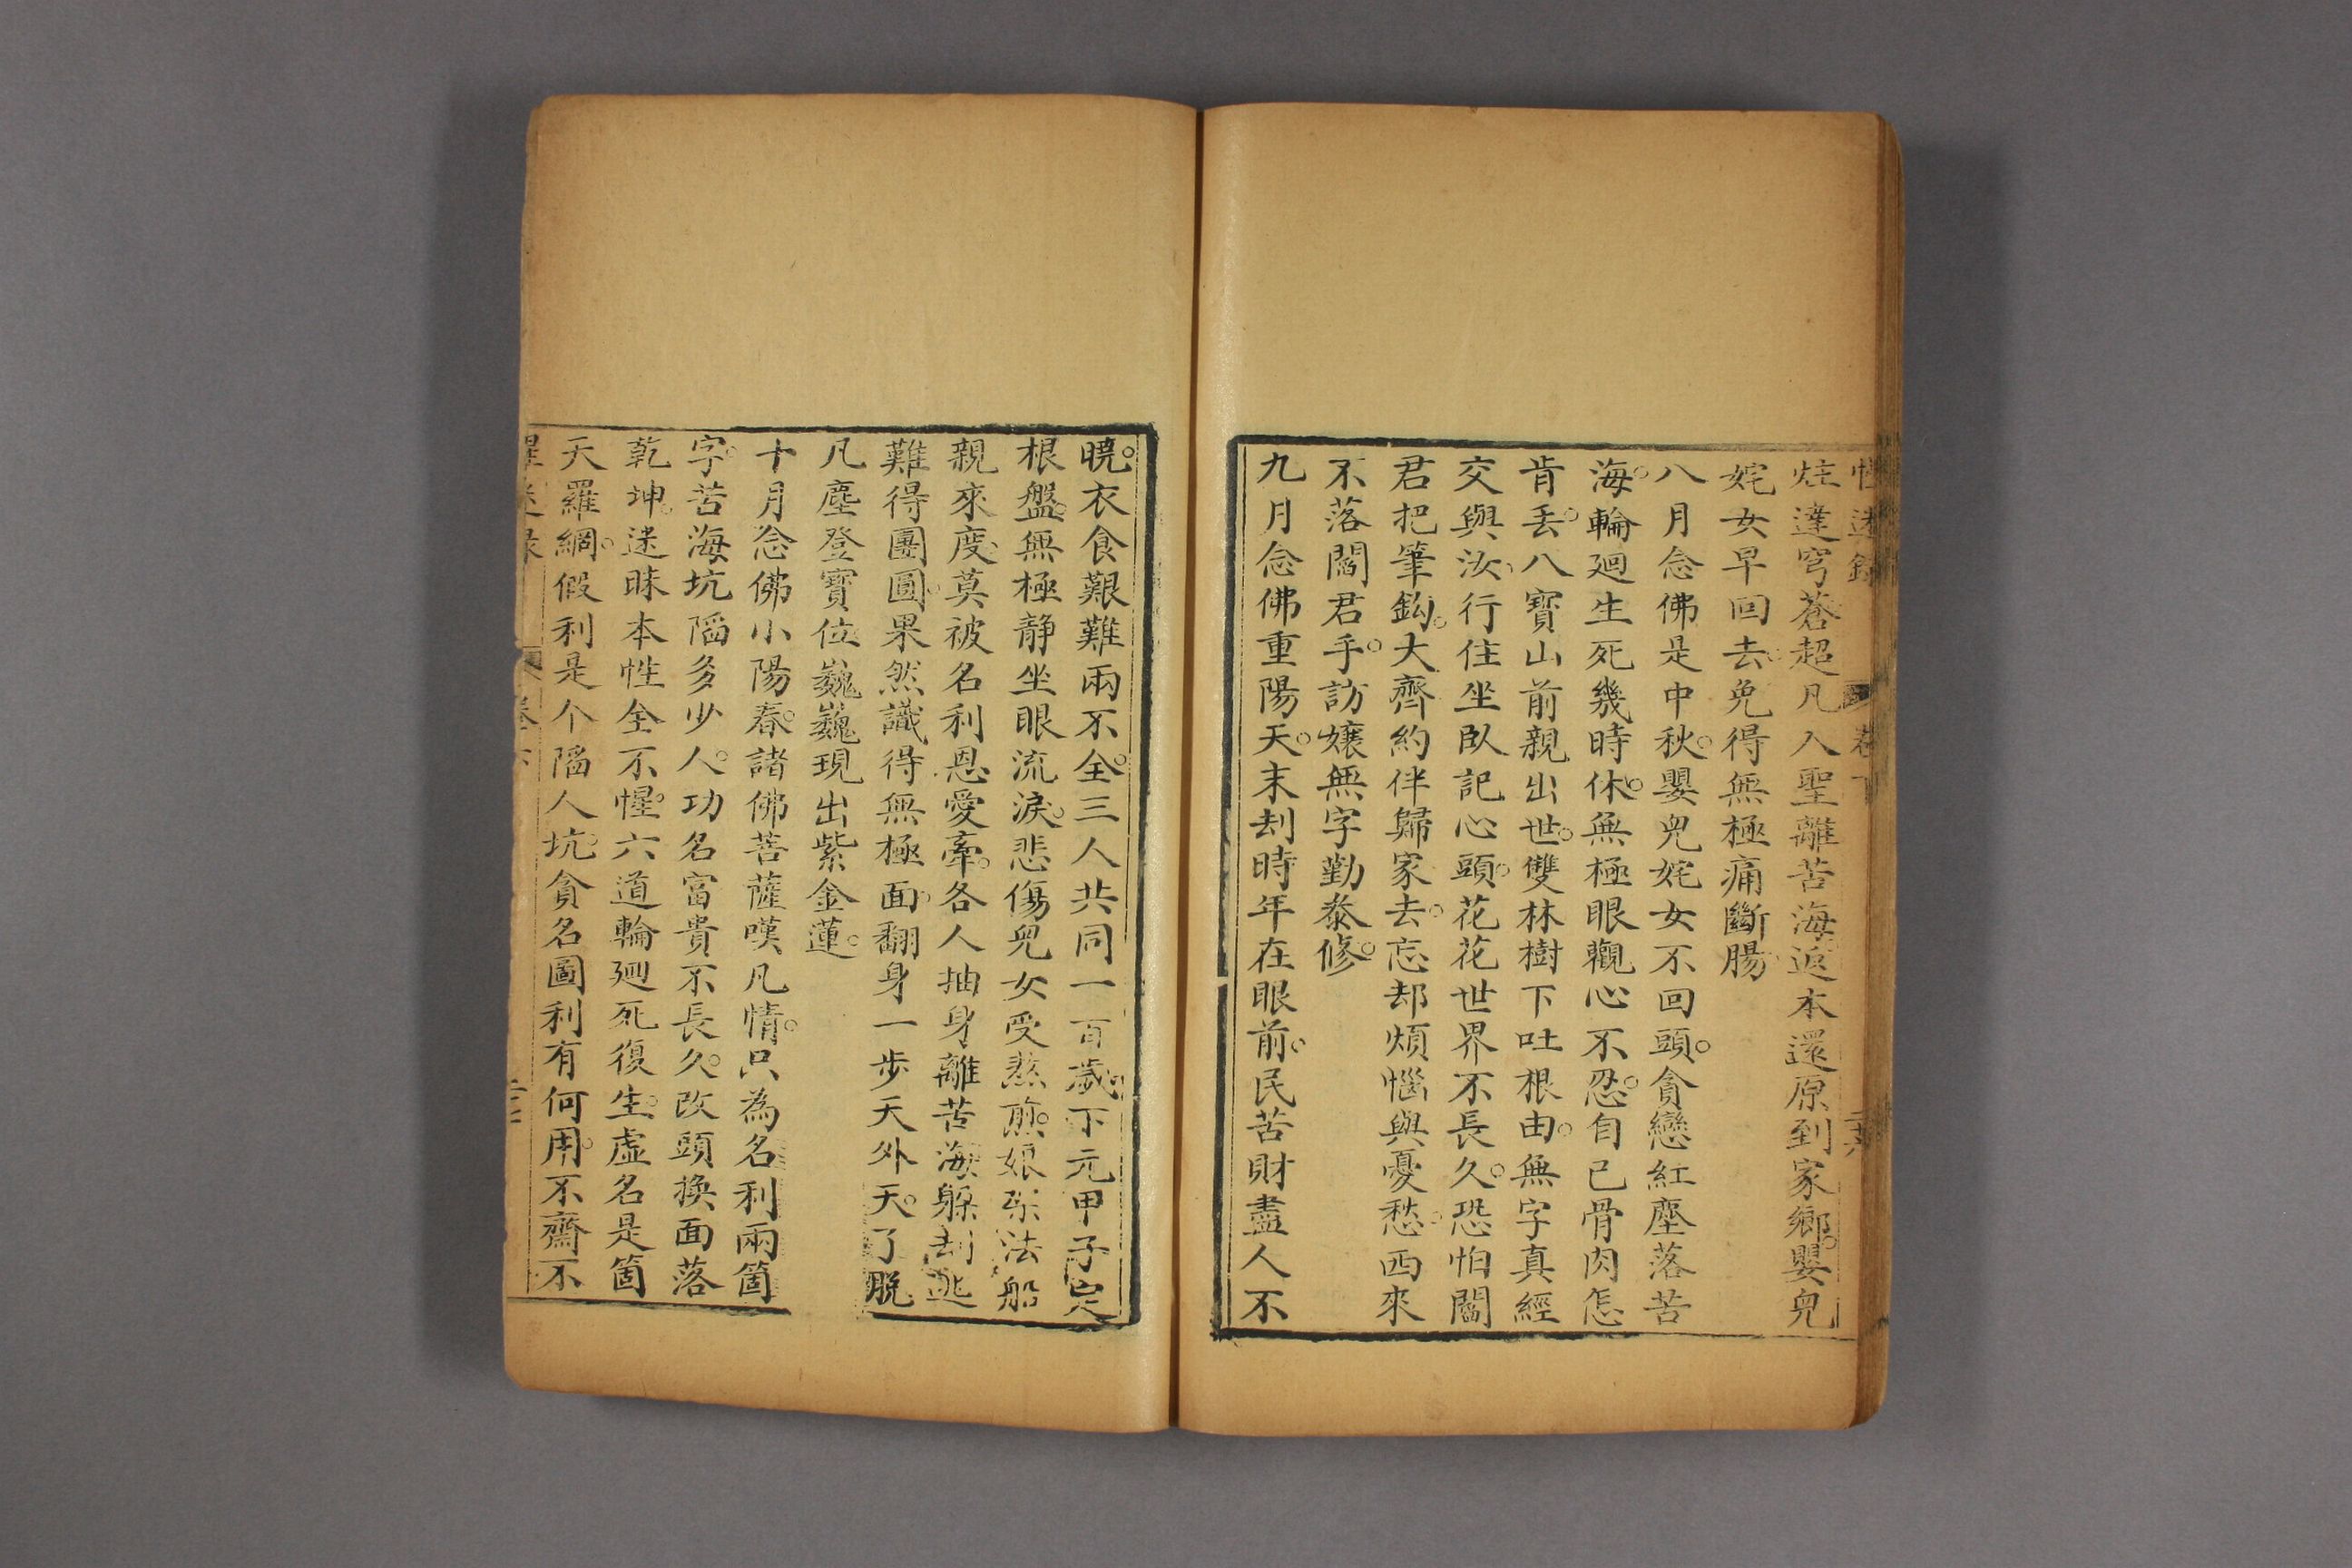 惺迷錄 卷下 二十六
炷達穹蒼超凡入聖離苦海返本還原到家鄉。嬰兒
姹女早回去。免得無極痛斷腸
八月念佛是中秋。嬰兒姹女不回頭。貪戀紅塵落苦
海。輪廻生死幾時休。無極眼觀心不忍。自己骨肉怎
肯丢。八寶山前親出世。雙林樹下吐根由。無字真經
交與汝。行住坐臥記心頭。花花世界不長久。恐怕閻
君把筆鈎。大齊約伴歸家去。忘却煩惱與憂愁。西來
不落閻君手。訪孃無字勤叅修。
九月念佛重陽天。末刦時年在眼前。民苦財盡人不
曉。衣食艱難兩不全。三人共同一百歲。下元甲子定
根盤。無極静坐眼流淚。悲傷兒女受熬煎。娘架法船
親來度。莫被名利恩愛牽。各人抽身離苦海躲刦逃
難得團圓。果然識得無極面。翻身一步天外天。了脫
凡塵登寶位巍巍現出紫金蓮。
十月念佛小陽春。諸佛菩薩嘆凡情。只為名利兩箇
字。苦海坑陷多少人。功名富貴不長久。改頭換面落
乾坤。迷昧本性全不惺。六道輪廻死復生。虛名是箇
天羅網。假利是个陷人坑。貪名圖利有何用。不齋不
惺迷錄 卷下 二十七